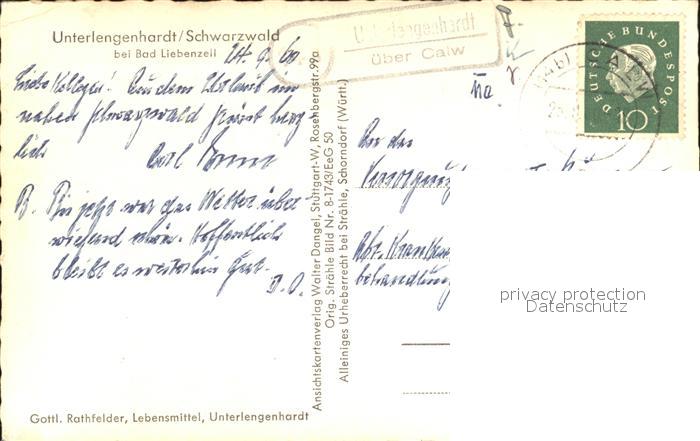 Unterlengenhardt/Schwarzwald
bei Bad Liebenzell
24. 9. 60
Liebe Kollegen! Aus dem Urlaub im
nahen Schwarzwald grüsst herz
lich
Carl
B. Bis jetzt war das Wetter über-
wiegend schön. Hoffentlich
bleibt es weiterhin gut.
D. O.
Gottl. Rathfelder, Lebensmittel, Unterlengenhardt
Ansichtskartenverlag Walter Dangel, Stuttgart-W, Rosenbergstr. 99a
Orig. Strähle Bild Nr. 8-1743/EeG 50
Alleiniges Urheberrecht bei Strähle, Schorndorf (Württ.)
Unterlengenhardt
über Calw
DEUTSCHE BUNDESPOST
10
An das
Versorgung
Abt. Kranken
behandlung
privacy protection
Datenschutz